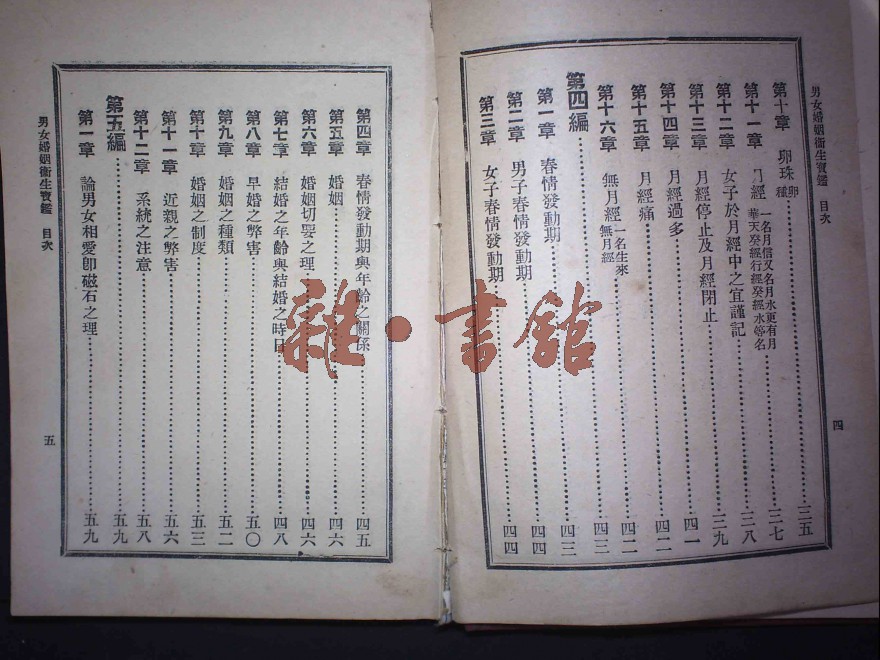 男女婚姻衞生寶鑑 目次
四
第十章 卵珠 卵種 三五
第十一章 月經 一名月信又名月水更有月華天癸經行經癸經水等名 三七
第十二章 女子於月經中之宜謹記 三八
第十三章 月經停止及月經閉止 三九
第十四章 月經過多 四一
第十五章 月經痛 四二
第十六章 無月經 一名生來無月經 四二
第四編 四三
第一章 春情發動期 四三
第二章 男子春情發動期 四四
第三章 女子春情發動期 四四
第四章 春情發動期與年齡之關係 四五
第五章 婚姻 四六
第六章 婚姻切要之理 四六
第七章 結婚之年齡與結婚之時日 四八
第八章 早婚之弊害 五〇
第九章 婚姻之種類 五二
第十章 婚姻之制度 五三
第十一章 近親之弊害 五六
第十二章 系統之注意 五八
第五編 五九
第一章 論男女相愛卽磁石之理 五九
男女婚姻衞生寶鑑 目次
五
雜·書館